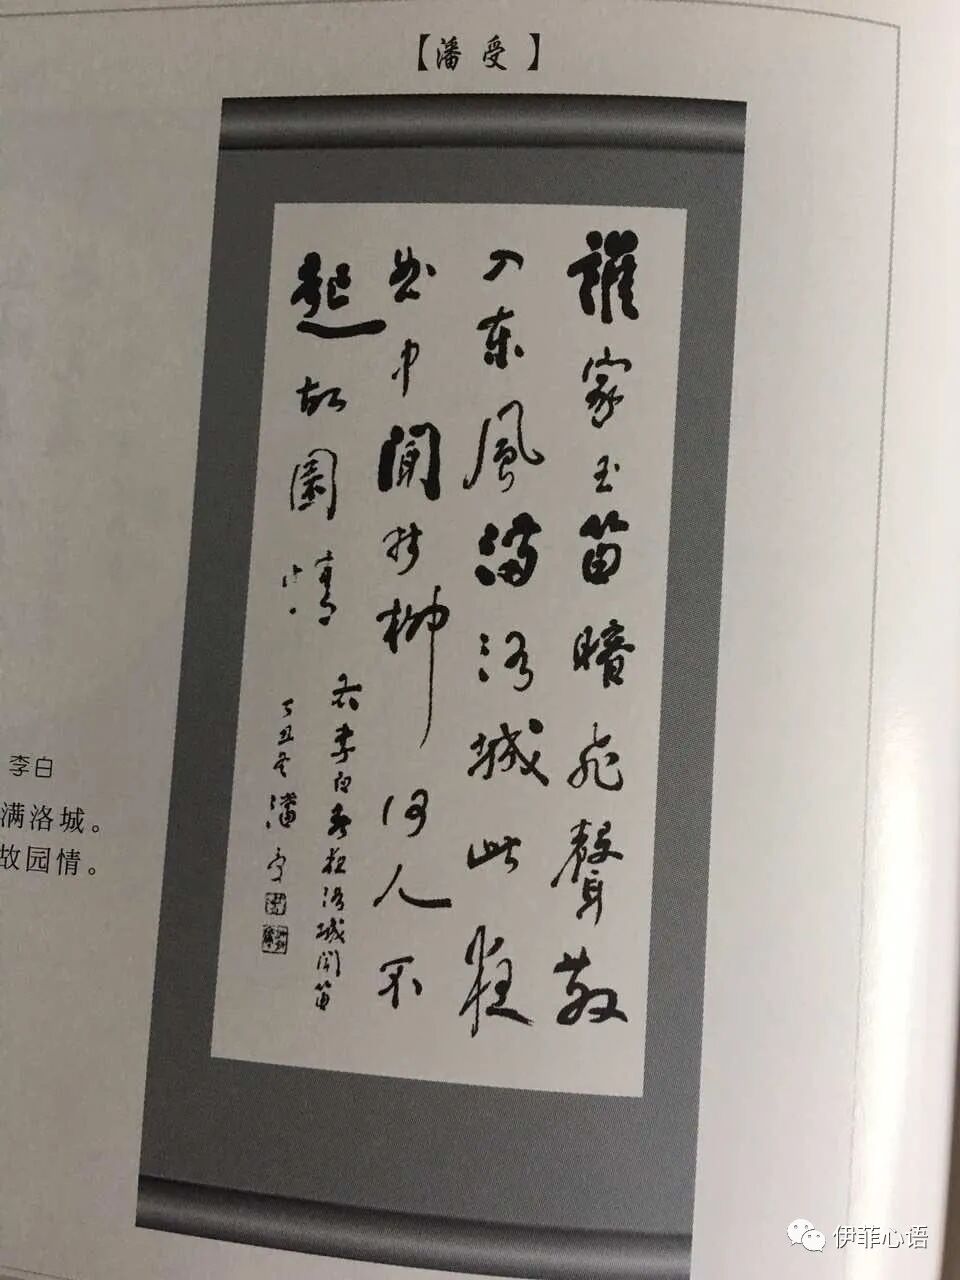 【潘受】
誰家玉笛暗飛聲散
入東風滿洛城此夜
曲中聞折柳何人不
起故園情
右李白春夜洛城聞笛
丁丑冬潘受
李白
满洛城。
故园情。
伊菲心语